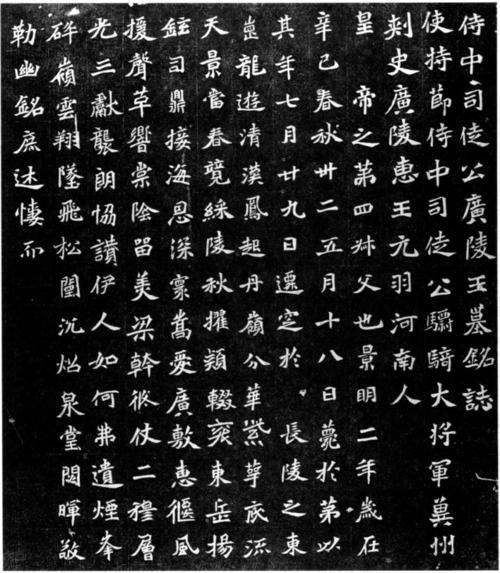 侍中司徒公廣陵王墓銘誌
使持節侍中司徒公驃騎大將軍冀州
刺史廣陵惠王元羽河南人
皇帝之第四叔父也景明二年歲在
辛巳春秋卅二五月十八日薨於第以
其年七月廿九日遷窆於長陵之東
崗龍遊清漢鳳起丹嶺分華紫萼底流
天景當春競綵陵秋擢穎輟袞東岳揚
鉉司鼎接海恩深寮嵩愛廣敷惠偃風
援聲草響棠陰留美梁幹攸仗二穆層
光三獻襲朗協讚伊人如何弗遺煙峯
碎嶺雲翔墜飛松闈沉炤泉堂閟暉敬
勒幽銘庶述悽而